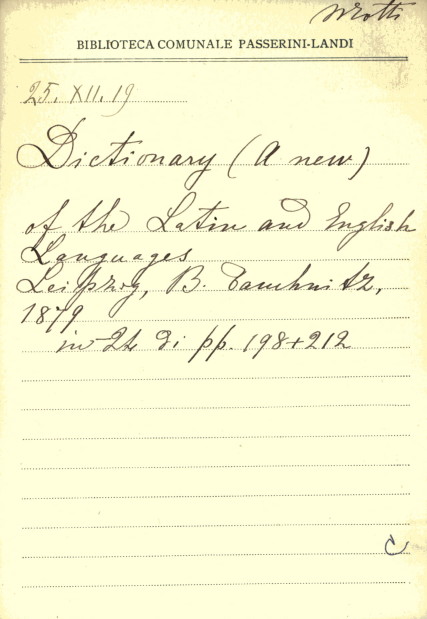 BIBLIOTECA COMUNALE PASSERINI-LANDI
25. XII. 19
Dictionary (A new)
of the Latin and English
Languages
Leipzig, B. Tauchnitz,
1879
in 24 di pp. 198+212
C